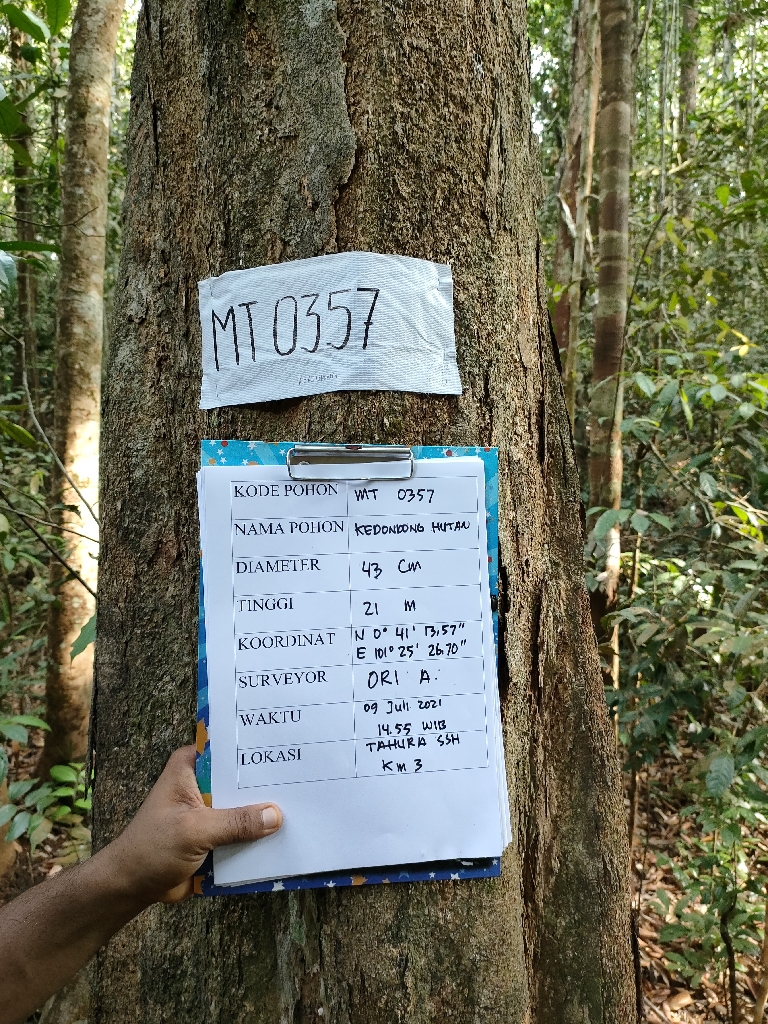 MT 0357
KODE POHON MT 0357
NAMA POHON KEDONDONG HUTAN
DIAMETER 43 Cm
TINGGI 21 m
KOORDINAT N 0° 41' 13,57"
E 101° 25' 26.70"
SURVEYOR ORI A.
WAKTU 09 Juli 2021
14.55 WIB
LOKASI TAHURA SSH
Km 3